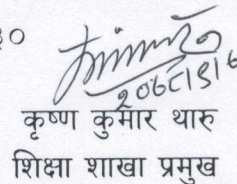 ३०
२०७८।९।६
कृष्ण कुमार थारु
शिक्षा शाखा प्रमुख